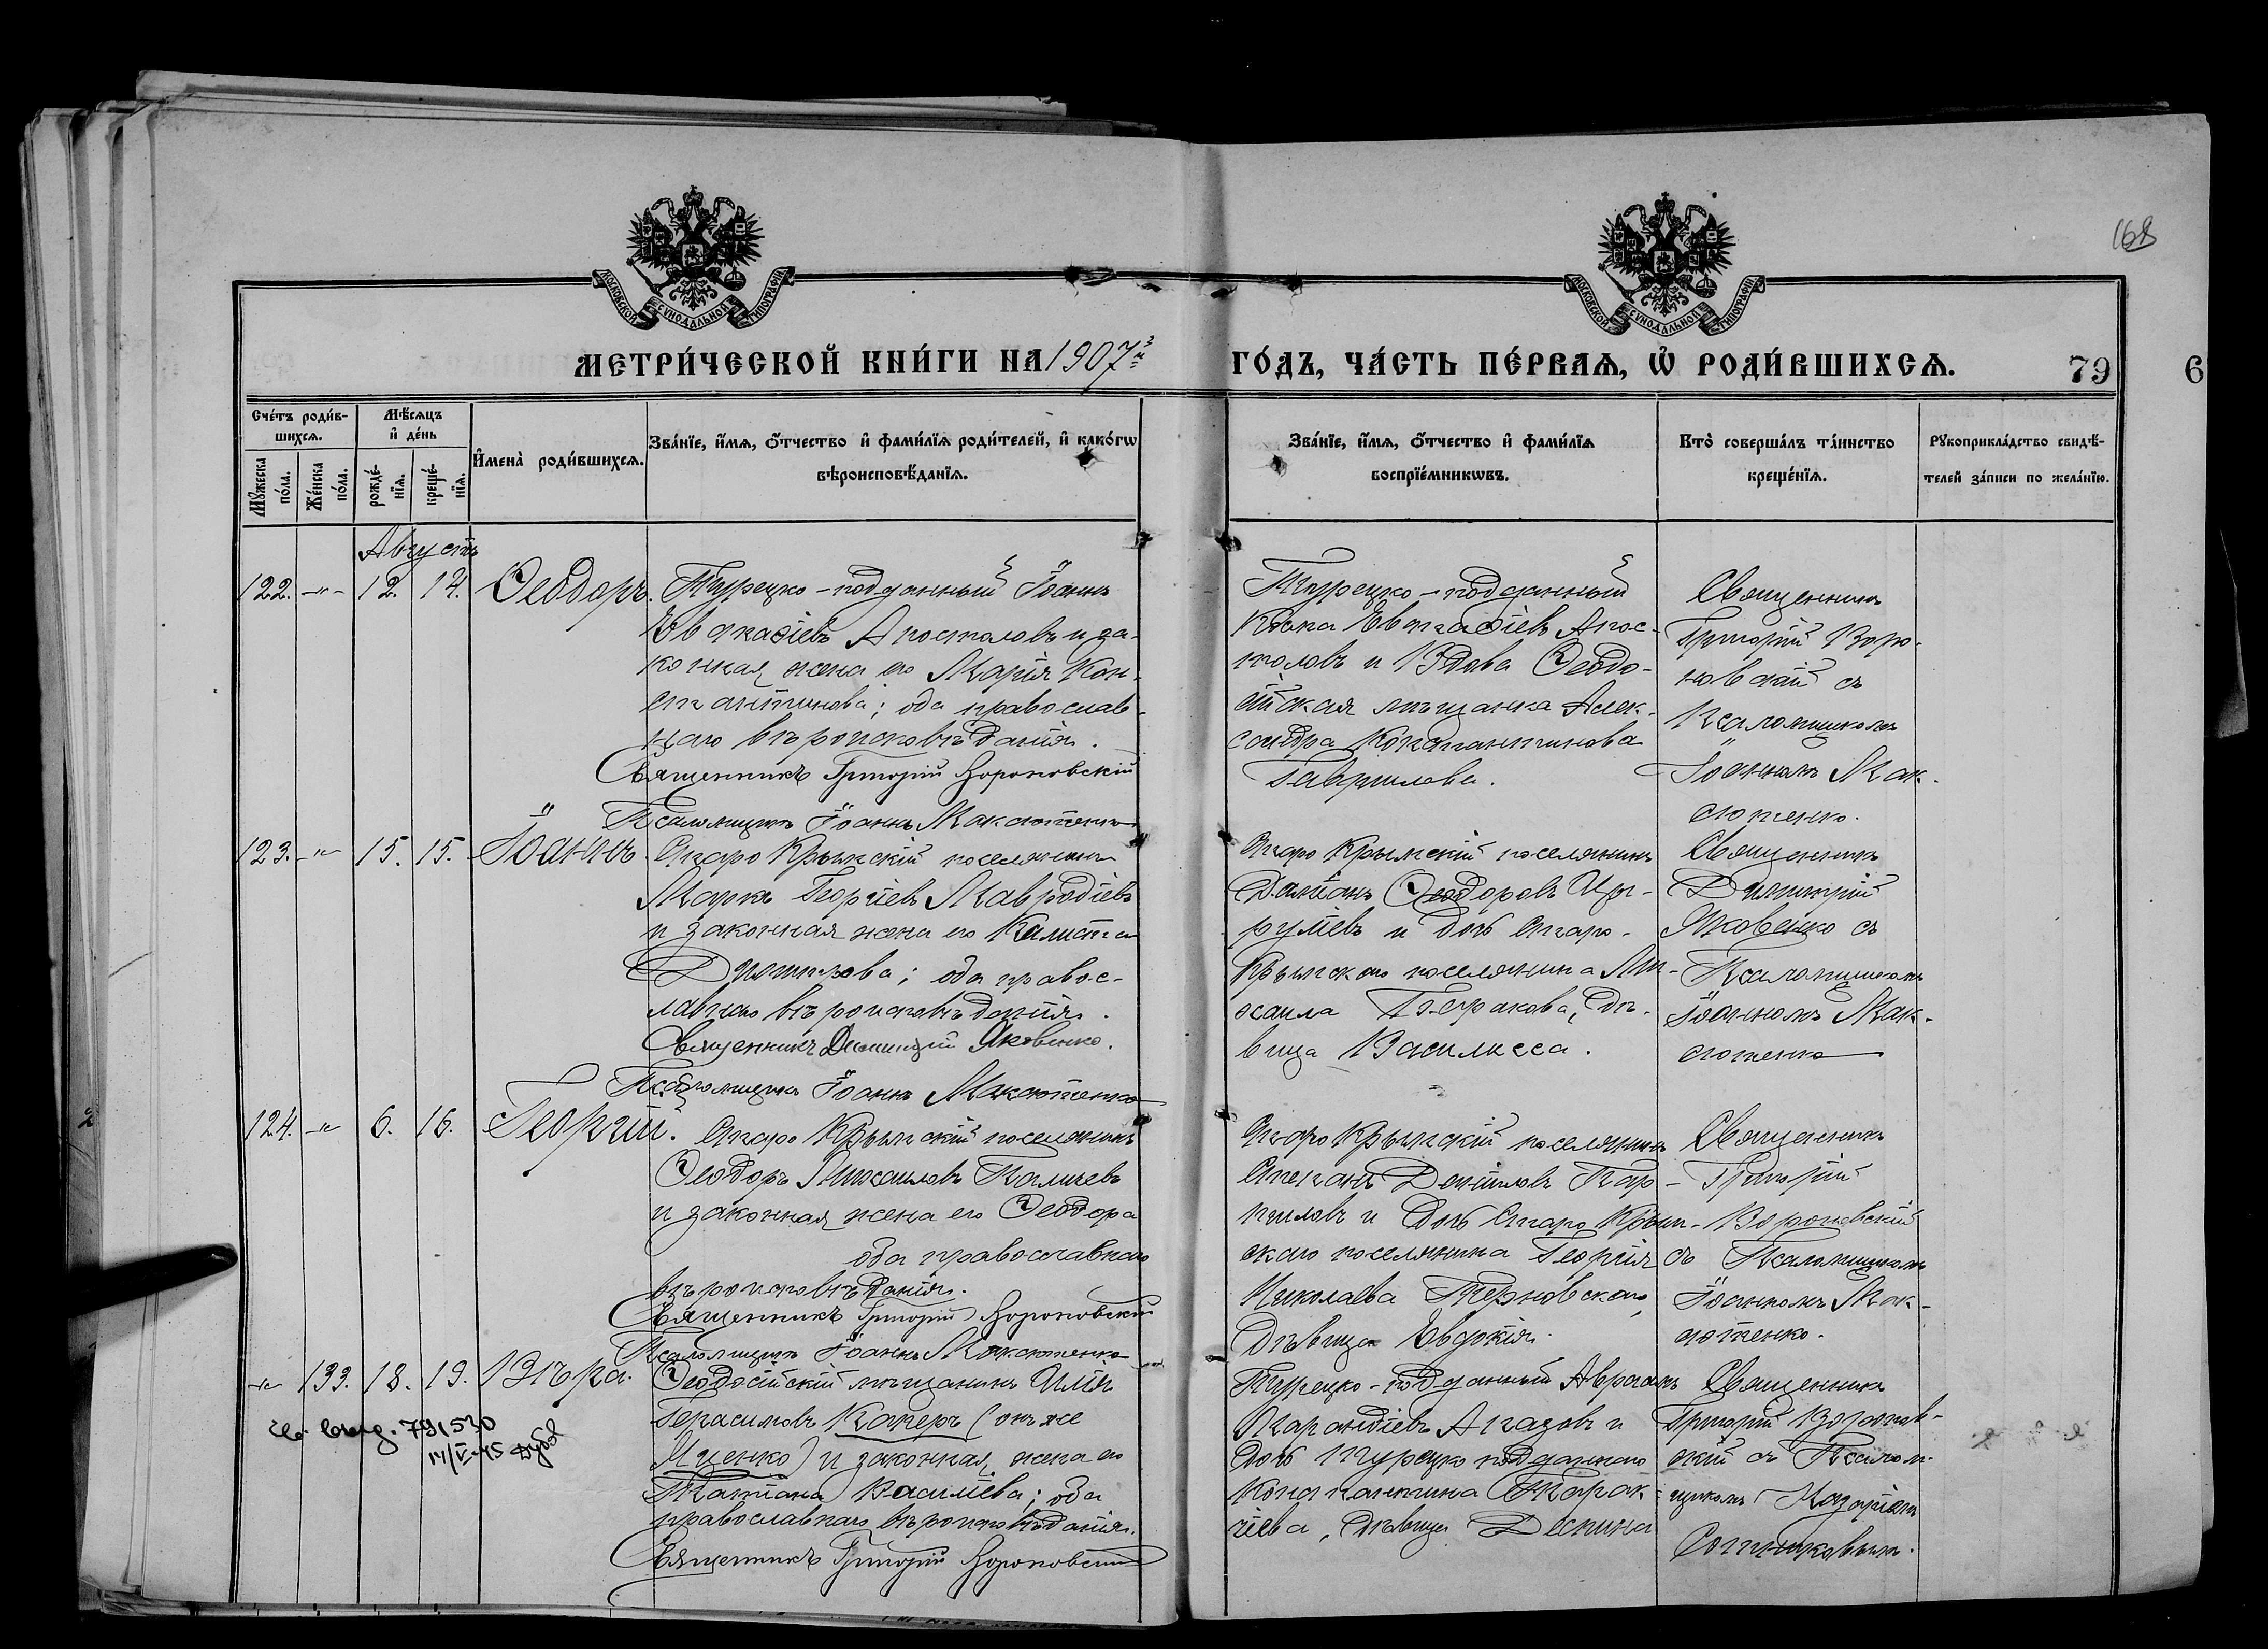 168
МОСКОВСКОЙ СѴНОДАЛЬНОЙ ТИПОГРАФІИ
МОСКОВСКОЙ СѴНОДАЛЬНОЙ ТИПОГРАФІИ
МЕТРИ́ЧЕСКОЙ КНИ́ГИ НА 1907й
ГО́ДЪ, ЧА́СТЬ ПЕ́РВАѦ, Ѡ҆ РОДИ́ВШИХСѦ.
79
6
Сче́тъ роди́в-
шихсѧ.
Мѣ́сѧцъ
и҆ де́нь
Мꙋ́жеска
по́ла.
Же́нска
по́ла.
рожде́-
нїѧ.
креще́-
нїѧ.
И҆мена̀ роди́вшихсѧ.
Зва́нїе, и҆́мѧ, ѻ҆́тчество и҆ фами́лїѧ роди́телей, и҆ како́гѡ
вѣроисповѣ́данїѧ.
Зва́нїе, и҆́мѧ, ѻ҆́тчество и҆ фами́лїѧ
воспрїе́мникѡвъ.
Кто̀ соверша́лъ та́инство
креще́нїѧ.
Рꙋкоприкла́дство свидѣ́-
телей за́писи по жела́нїю.
Августъ
122. -"- 12. 14. Ѳеодоръ.
Турецко-подданный Іоаннъ
Евстафіевъ Апостоловъ и за-
конная жена его Марія Кон-
стантинова; оба православ-
наго вѣроисповѣданія.
Священникъ Григорій Вороновскій
Псаломщикъ Іоаннъ Максютенко
Турецко-подданный
Евстафіевъ Апос-
толовъ и вдова Ѳеодо-
сійская мѣщанка Алек-
сандра Константинова
Гаврилова.
Священникъ
Григорій Воро-
новскій съ
Псаломщикомъ
Іоанномъ Мак-
сютенко.
123. -"- 15. 15. Іоаннъ.
Старо Крымскій поселянинъ
Маркъ Георгіевъ Мавродіевъ
и законная жена его Калиста
Димитрова; оба правос-
лавнаго вѣроисповѣданія.
Священникъ Димитрій Яковенко.
Псаломщикъ Іоаннъ Максютенко
Старо Крымскій поселянинъ
Даміанъ Ѳеодоровъ
и дочь Старо-
Крымскаго поселянина Ми-
хаила дѣ-
вица Василисса.
Священникъ
Димитрій
Яковенко съ
Псаломщикомъ
Іоанномъ Мак-
сютенко
124. -"- 6. 16. Георгій.
Старо Крымскій поселянинъ
Ѳеодоръ Михаиловъ Каличевъ
и законная жена его Ѳеодора
оба православнаго
вѣроисповѣданія.
Священникъ Григорій Вороновскій
Псаломщикъ Іоаннъ Максютенко
Старо Крымскій поселянинъ
Степанъ Даніиловъ
и дочь Старо Крым-
скаго поселянина Георгія
Николаева Терновскаго,
Дѣвица Евдокія.
Священникъ
Григорій
Вороновскій
съ Псаломщикомъ
Іоанномъ Мак-
сютенко.
-"- 133. 18. 19. Вѣра.
Ѳеодосійскій мѣщанинъ Илія
Герасимовъ Каперъ (онъ же
Яценко) и законная жена его
Татіана Василіева; оба
православнаго вѣроисповѣданія.
Священникъ Григорій Вороновскій
791530
Турецко-подданный Авраамъ
и
дочь Турецко подданнаго
Константина Карак-
дѣвица Деспина
Священникъ
Григорій Воронов-
скій съ Псалом-
щикомъ Назаріемъ
Сотниковымъ.